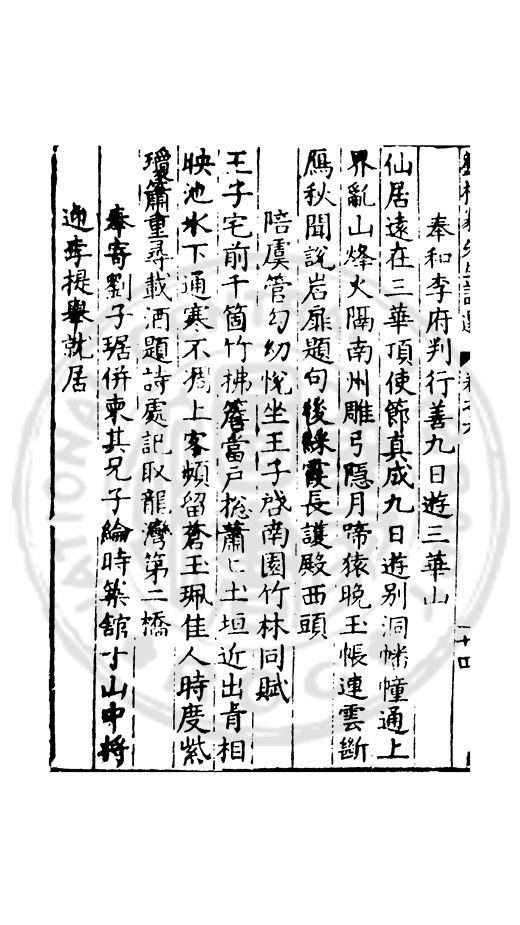 奉和李府判行善九日遊三華山
仙居遠在三華頂使節真成九日遊別洞幡幢通上
界亂山烽火隔南州雕弓隠月啼猿晚玉帳連雲斷
鴈秋聞說岩扉題句後綵霞長護殿西頭
陪虞管勾幼悅坐王子啓南園竹林同賦
王子宅前千箇竹拂簷當戶揔蕭〻土垣近出肯相
映池水下通寒不凋上客頻留蒼玉珮佳人時度紫
瓊簫重尋載酒題詩處記取龍灣第二橋
奉寄劉子琚併柬其兄子綸時築館于山中將
迎李提舉就居
十四